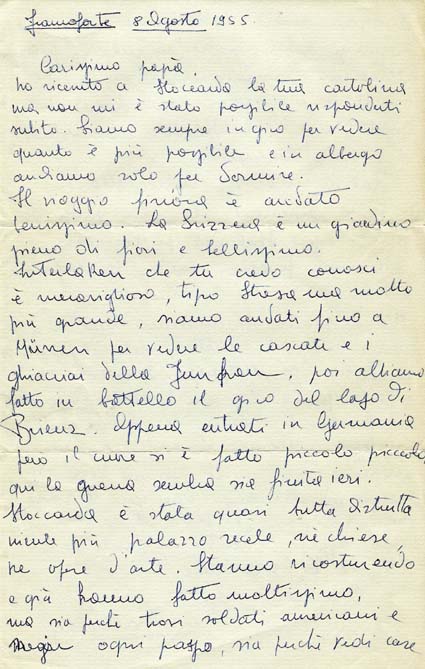 Francoforte 8 Agosto 1955.
Carissimo papà,
ho ricevuto a Stoccarda la tua cartolina
ma non mi è stato possibile risponderti
subito. Siamo sempre in giro per vedere
quanto è più possibile e in albergo
andiamo solo per dormire.
Il viaggio finora è andato
benissimo. La Svizzera è un giardino
pieno di fiori e bellissimo.
Interlaken che tu credo conosci
è meraviglioso, tipo Stresa ma molto
più grande, siamo andati fino a
Mürren per vedere le cascate e i
ghiacciai della Junfrau, poi abbiamo
fatto in battello il giro del lago di
Brienz. Appena entrati in Germania
però il cuore si è fatto piccolo piccolo,
qui la guerra sembra sia finita ieri.
Stoccarda è stata quasi tutta distrutta
niente più palazzo reale, nè chiese,
ne opere d'arte. Stanno ricostruendo
e già hanno fatto moltissimo,
ma sia perchè trovi soldati americani e
ogni passo, sia perchè vedi case